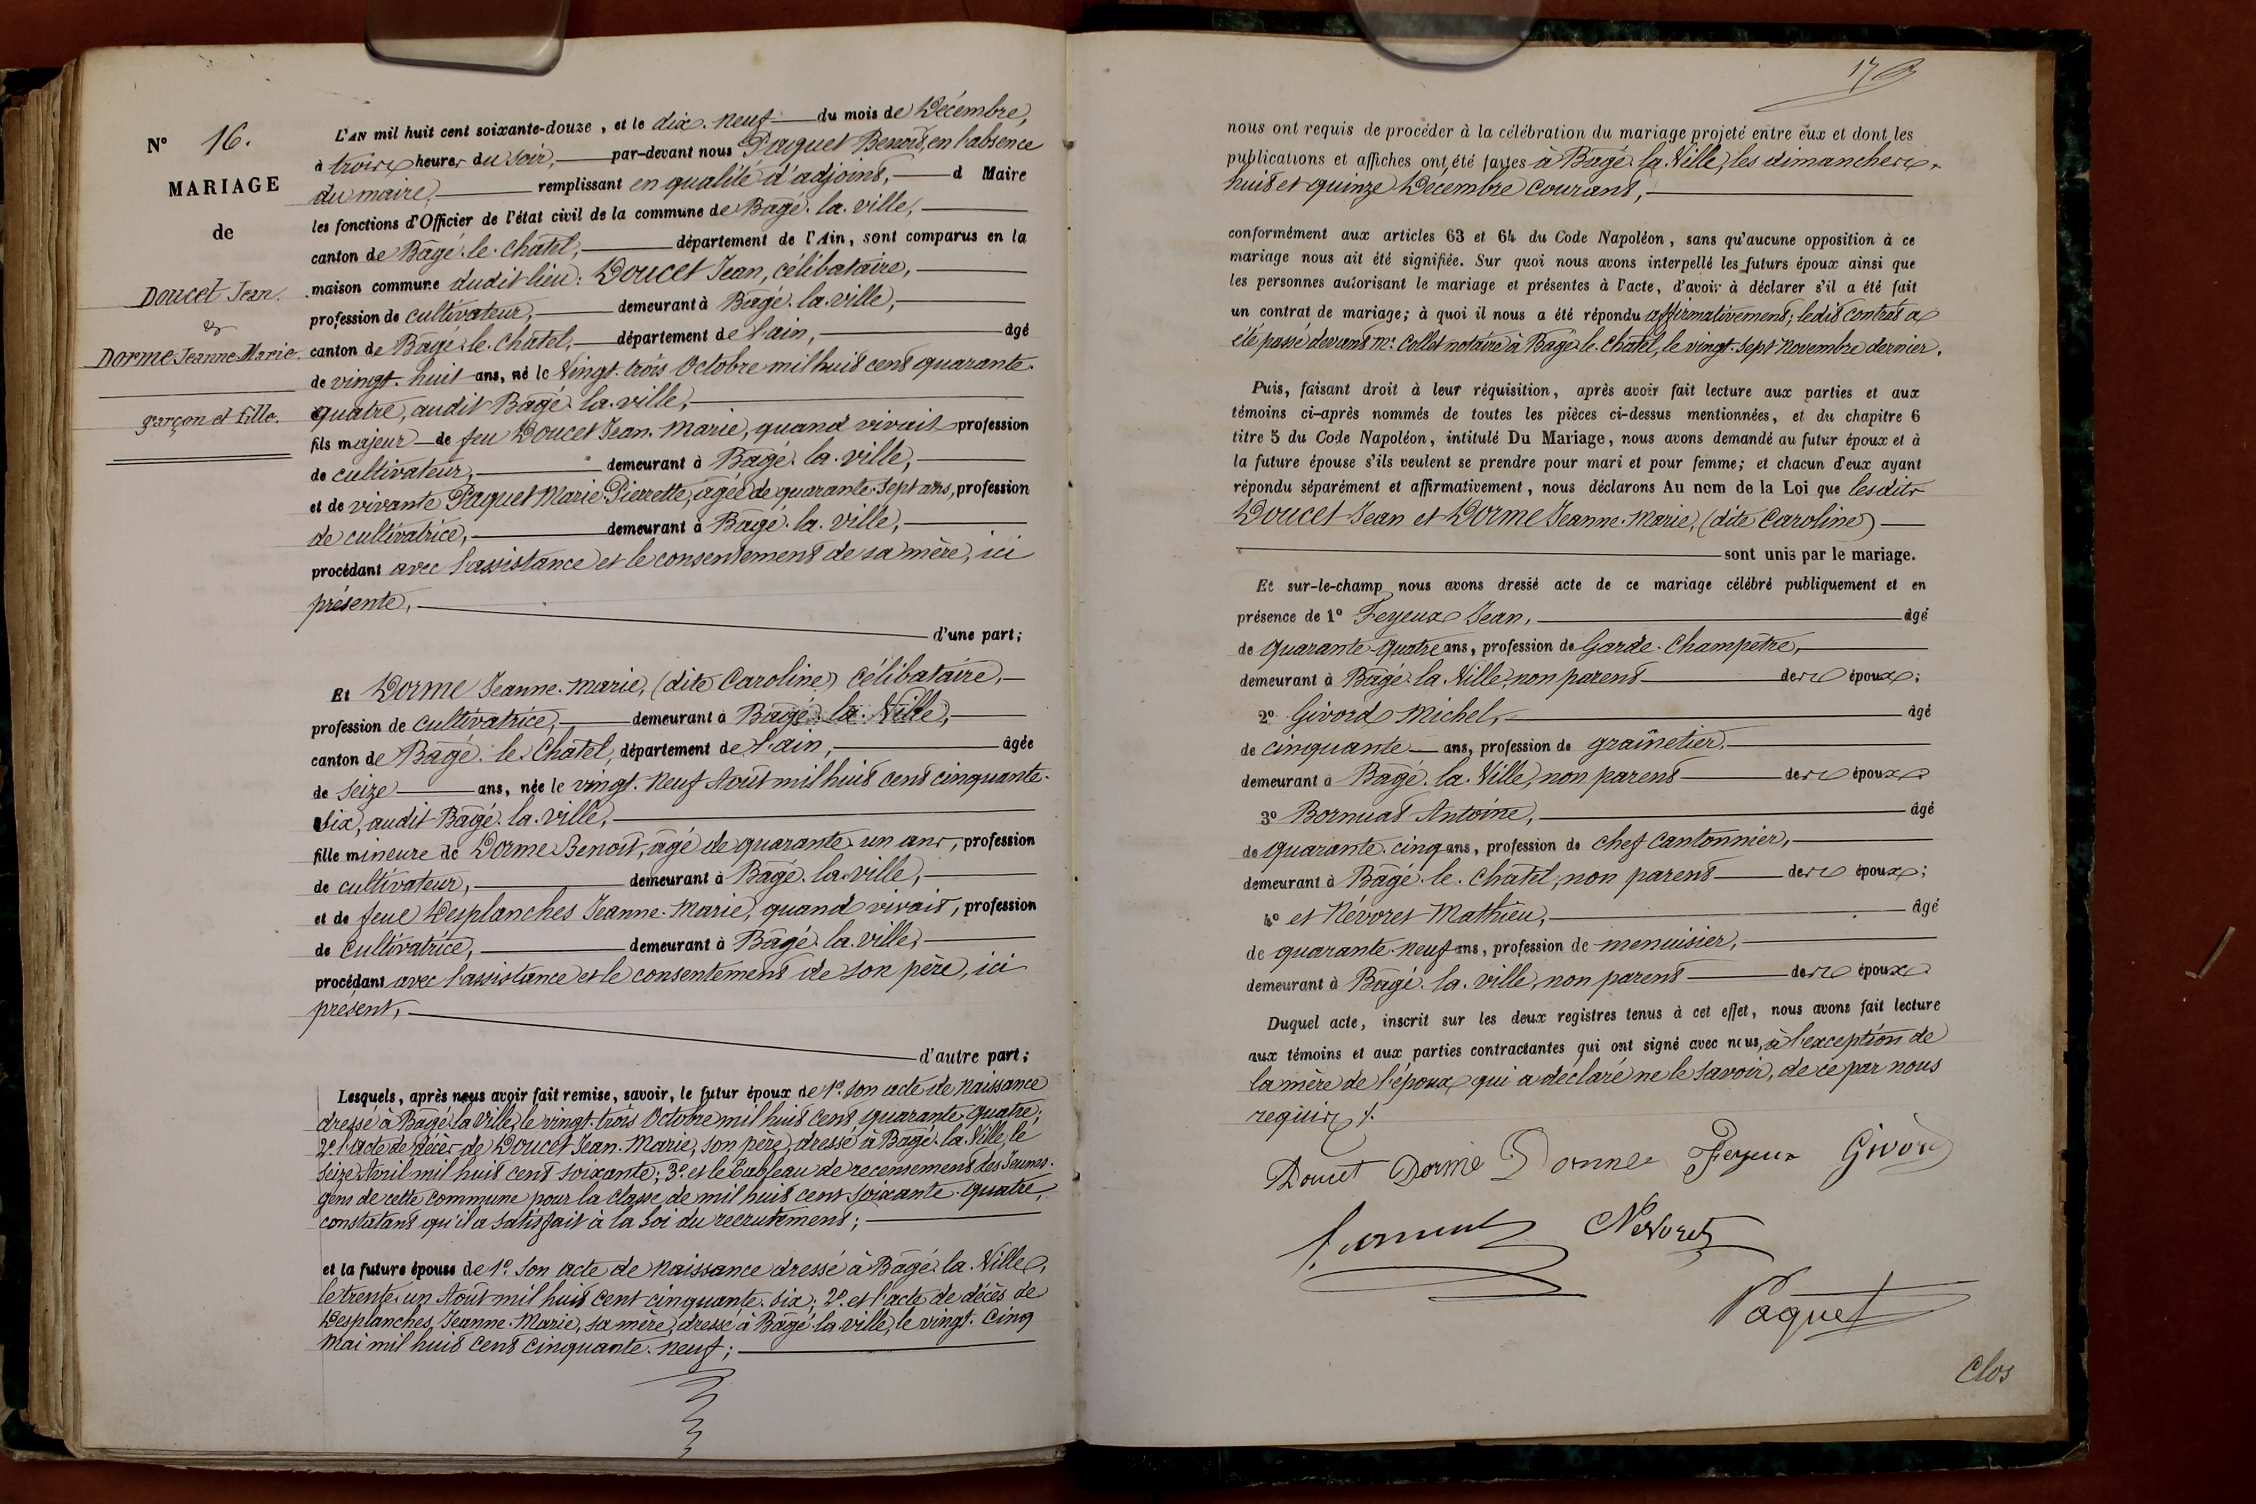 N° 16.
MARIAGE
de
Doucet Jean.
&
Dorme Jeanne Marie.
garçon et fille.
L'AN mil huit cent soixante-douze, et le dix-neuf du mois de Décembre,
à trois heures du soir, par-devant nous Paquet Benoit, en l'absence
du maire, remplissant en qualité d'adjoint, d Maire
les fonctions d'Officier de l'état civil de la commune de Bâgé-la-ville,
canton de Bâgé-le-Châtel, département de l'Ain, sont comparus en la
maison commune dudit lieu: Doucet Jean, célibataire,
profession de cultivateur, demeurant à Bâgé-la-ville,
canton de Bâgé-le-Châtel, département de l'ain, âgé
de vingt-huit ans, né le Vingt-trois Octobre mil huit cent quarante-
quatre, audit Bâgé-la-ville,
fils majeur de feu Doucet Jean-Marie, quand vivait profession
de cultivateur, demeurant à Bâgé-la-ville,
et de vivante Paquet Marie-Pierrette, âgée de quarante-sept ans, profession
de cultivatrice, demeurant à Bâgé-la-ville,
procédant avec l'assistance et le consentement de sa mère, ici
présente,
d'une part;
Et Dorme Jeanne-Marie, (dite Caroline) célibataire,
profession de cultivatrice, demeurant à Bâgé-la-Ville,
canton de Bâgé-le-Châtel, département de l'ain, âgée
de seize ans, née le vingt-neuf Août mil huit cent cinquante-
six, audit Bâgé-la-ville,
fille mineure de Dorme Benoit, âgé de quarante-un ans, profession
de cultivateur, demeurant à Bâgé-la-ville,
et de feue Desplanches Jeanne-Marie, quand vivait, profession
de cultivatrice, demeurant à Bâgé-la-ville,
procédant avec l'assistance et le consentement de son père, ici
présent,
d'autre part;
Lesquels, après nous avoir fait remise, savoir, le futur époux de 1° son acte de naissance
dressé à Bâgé-la-Ville, le vingt-trois Octobre mil huit cent quarante-quatre;
2° l'acte de décès de Doucet Jean-Marie, son père, dressé à Bâgé-la-Ville, le
seize Avril mil huit cent soixante; 3° et le Tableau de recensement des Jeunes-
gens de cette commune pour la classe de mil huit cent soixante-quatre,
constatant qu'il a satisfait à la loi du recrutement;
et la future épouse de 1° son acte de naissance dressé à Bâgé-la-Ville,
le trente-un Août mil huit cent cinquante-six; 2° et l'acte de décès de
Desplanches, Jeanne-Marie, sa mère, dressé à Bâgé-la-ville, le vingt-cinq
mai mil huit cent cinquante-neuf;
17
nous ont requis de procéder à la célébration du mariage projeté entre eux et dont les
publications et affiches ont été faites à Bâgé-la-Ville, les dimanches
huit et quinze Décembre courant,
conformément aux articles 63 et 64 du Code Napoléon, sans qu'aucune opposition à ce
mariage nous ait été signifiée. Sur quoi nous avons interpellé les futurs époux ainsi que
les personnes autorisant le mariage et présentes à l'acte, d'avoir à déclarer s'il a été fait
un contrat de mariage; à quoi il nous a été répondu affirmativement; ledit contrat a
été passé devant Me Collet notaire à Bâgé-le-Châtel, le vingt-sept Novembre dernier.
Puis, faisant droit à leur réquisition, après avoir fait lecture aux parties et aux
témoins ci-après nommés de toutes les pièces ci-dessus mentionnées, et du chapitre 6
titre 5 du Code Napoléon, intitulé Du Mariage, nous avons demandé au futur époux et à
la future épouse s'ils veulent se prendre pour mari et pour femme; et chacun d'eux ayant
répondu séparément et affirmativement, nous déclarons Au nom de la Loi que lesdits
Doucet Jean et Dorme Jeanne-Marie, (dite Caroline)
sont unis par le mariage.
Et sur-le-champ nous avons dressé acte de ce mariage célébré publiquement et en
présence de 1° Feyeux Jean, âgé
de quarante-quatre ans, profession de Garde-Champêtre,
demeurant à Bâgé-la-Ville, non parent des époux;
2° Givord Michel, âgé
de cinquante ans, profession de graînetier,
demeurant à Bâgé-la-Ville, non parent des époux
3° Bornuat Antoine, âgé
de quarante-cinq ans, profession de chef Cantonnier,
demeurant à Bâgé-le-Châtel, non parent des époux;
4° et Névoret Mathieu, âgé
de quarante-neuf ans, profession de menuisier,
demeurant à Bâgé-la-ville, non parent des époux
Duquel acte, inscrit sur les deux registres tenus à cet effet, nous avons fait lecture
aux témoins et aux parties contractantes qui ont signé avec nous, à l'exception de
la mère de l'époux qui a déclaré ne le savoir, de ce par nous
requis
Doucet Dorme Dorme Feyeux Givord
Nevoret
Paquet
Clos